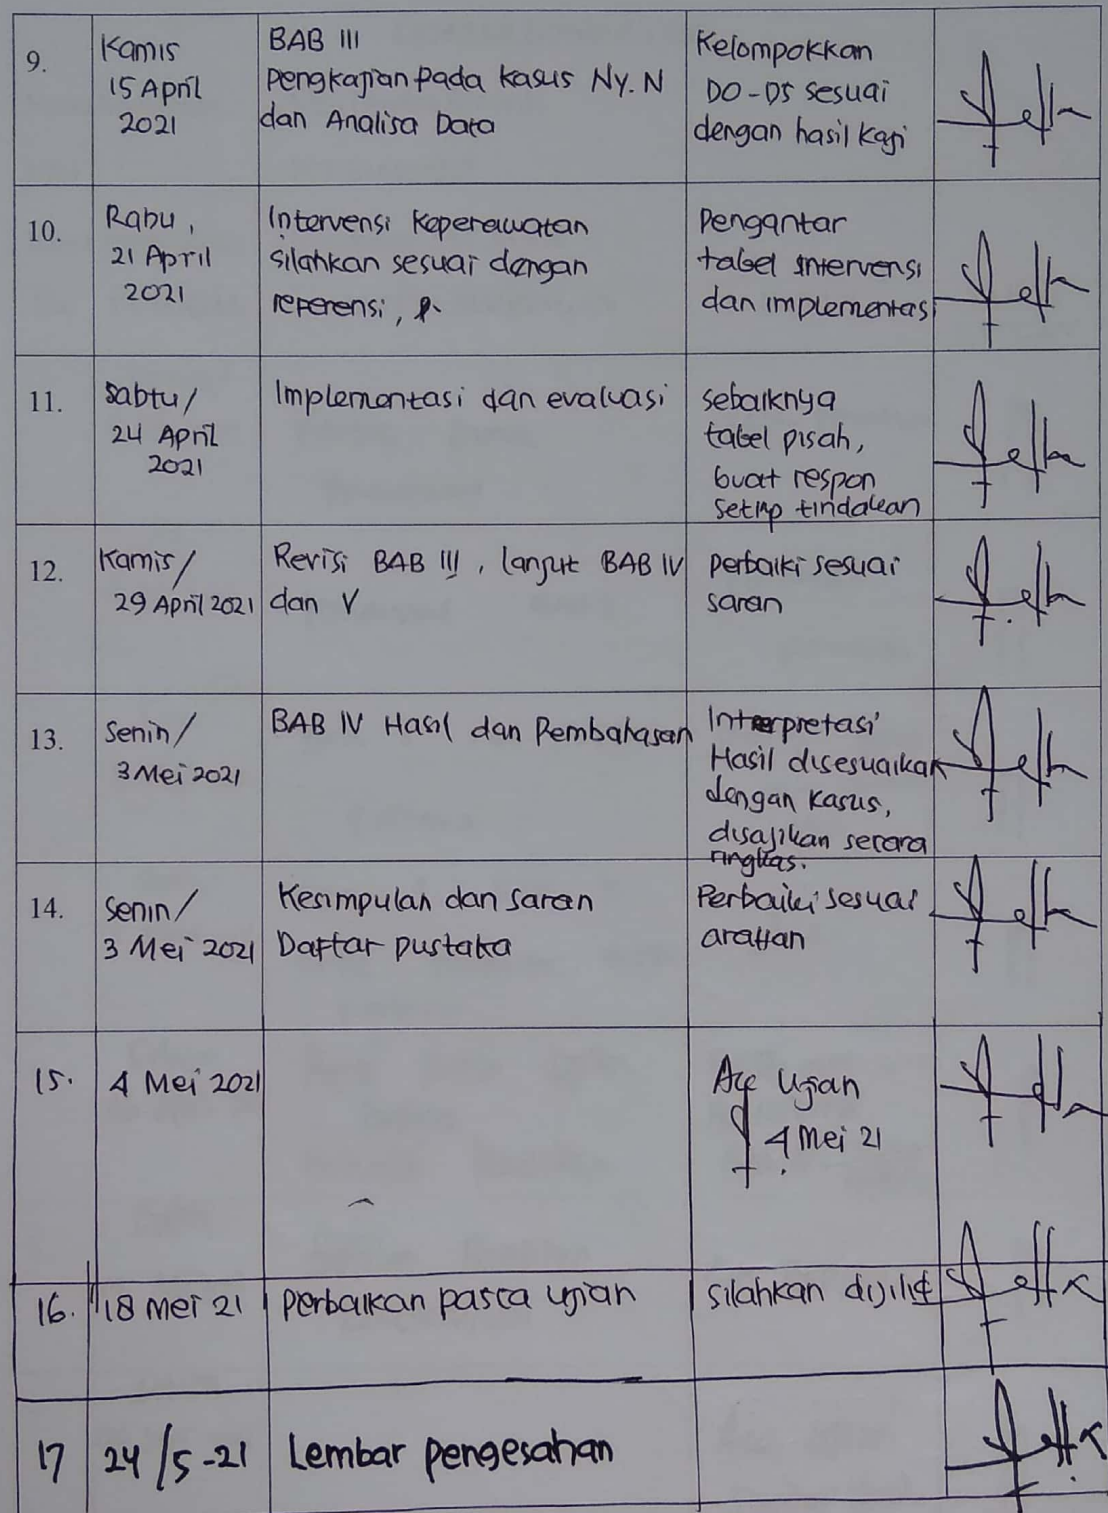 9.
Kamis
15 April
2021
BAB III
Pengkajian pada kasus Ny. N
dan Analisa Data
Kelompokkan
DO - DS sesuai
dengan hasil kaji
10.
Rabu,
21 April
2021
Intervensi Keperawatan
silahkan sesuai dengan
referensi,
Pengantar
tabel intervensi
dan implementasi
11.
Sabtu/
24 April
2021
Implementasi dan evaluasi
sebaiknya
tabel pisah,
buat respon
setiap tindakan
12.
Kamis/
29 April 2021
Revisi BAB III, lanjut BAB IV
dan V
perbaiki sesuai
saran
13.
Senin/
3 Mei 2021
BAB IV Hasil dan Pembahasan
Interpretasi
Hasil disesuaikan
dengan kasus,
disajikan secara
ringkas.
14.
Senin/
3 Mei 2021
Kesimpulan dan saran
Daftar pustaka
Perbaiki sesuai
arahan
15.
4 Mei 2021
Acc Ujian
4 Mei 21
16.
18 Mei 21
perbaikan pasca ujian
silahkan dijilid
17
24/5-21
Lembar pengesahan